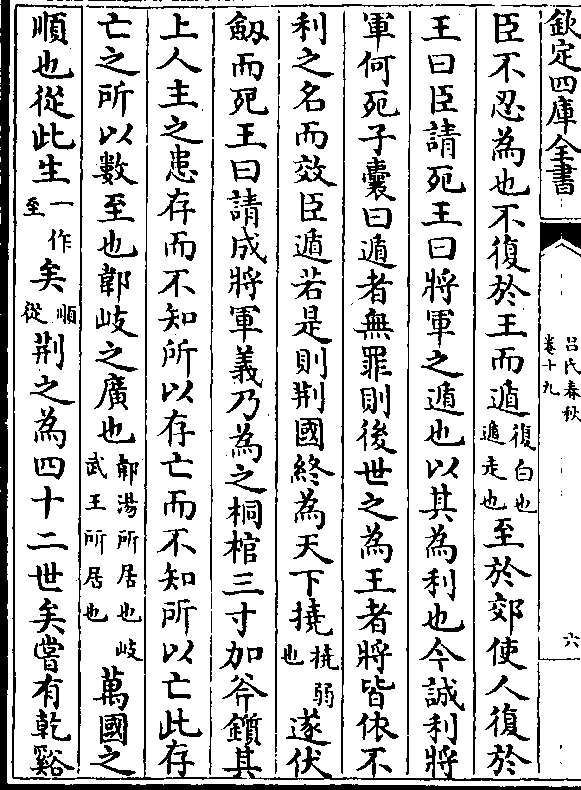 欽定四庫全書
呂氏春秋
卷十九
六
臣不忍為也不復於王而遁復白也遁走也至於郊使人復於
王曰臣請死王曰將軍之遁也以其為利也今誠利將
軍何死子囊曰遁者無罪則後世之為王者將皆依不
利之名而效臣遁若是則荆國終為天下撓撓弱也遂伏
劔而死王曰請成將軍義乃為之桐棺三寸加斧鑕其
上人主之患存而不知所以存亡而不知所以亡此存
亡之所以數至也鄣岐之廣也鄣湯所居也岐武王所居也萬國之
順也從此生一作至矣順從荆之為四十二世矣嘗有乾谿